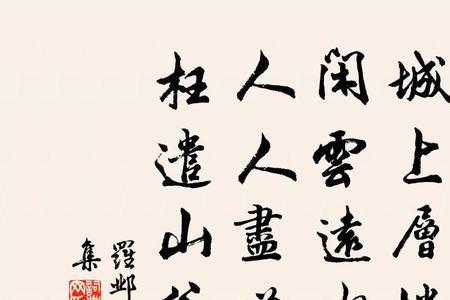 城上層
閑雲遠
人人盡
枉遣山
羅邺
集